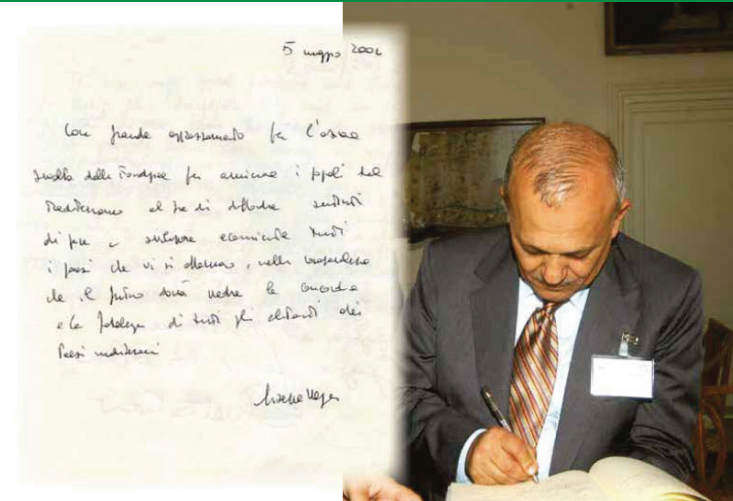 5 maggio 2004
Con grande apprezzamento per l'opera
svolta dalla Fondazione per avvicinare i popoli del
Mediterraneo al fine di diffondere sentimenti
di pace e sviluppare economicamente tutti
i paesi che vi si affacciano, nella
che il futuro dovrà vedere la concordia
e la fratellanza di tutti gli abitanti dei
Paesi mediterranei